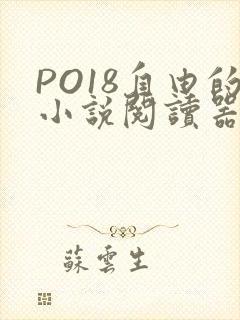 PO18自由的
小說閱讀器
蘇雲生